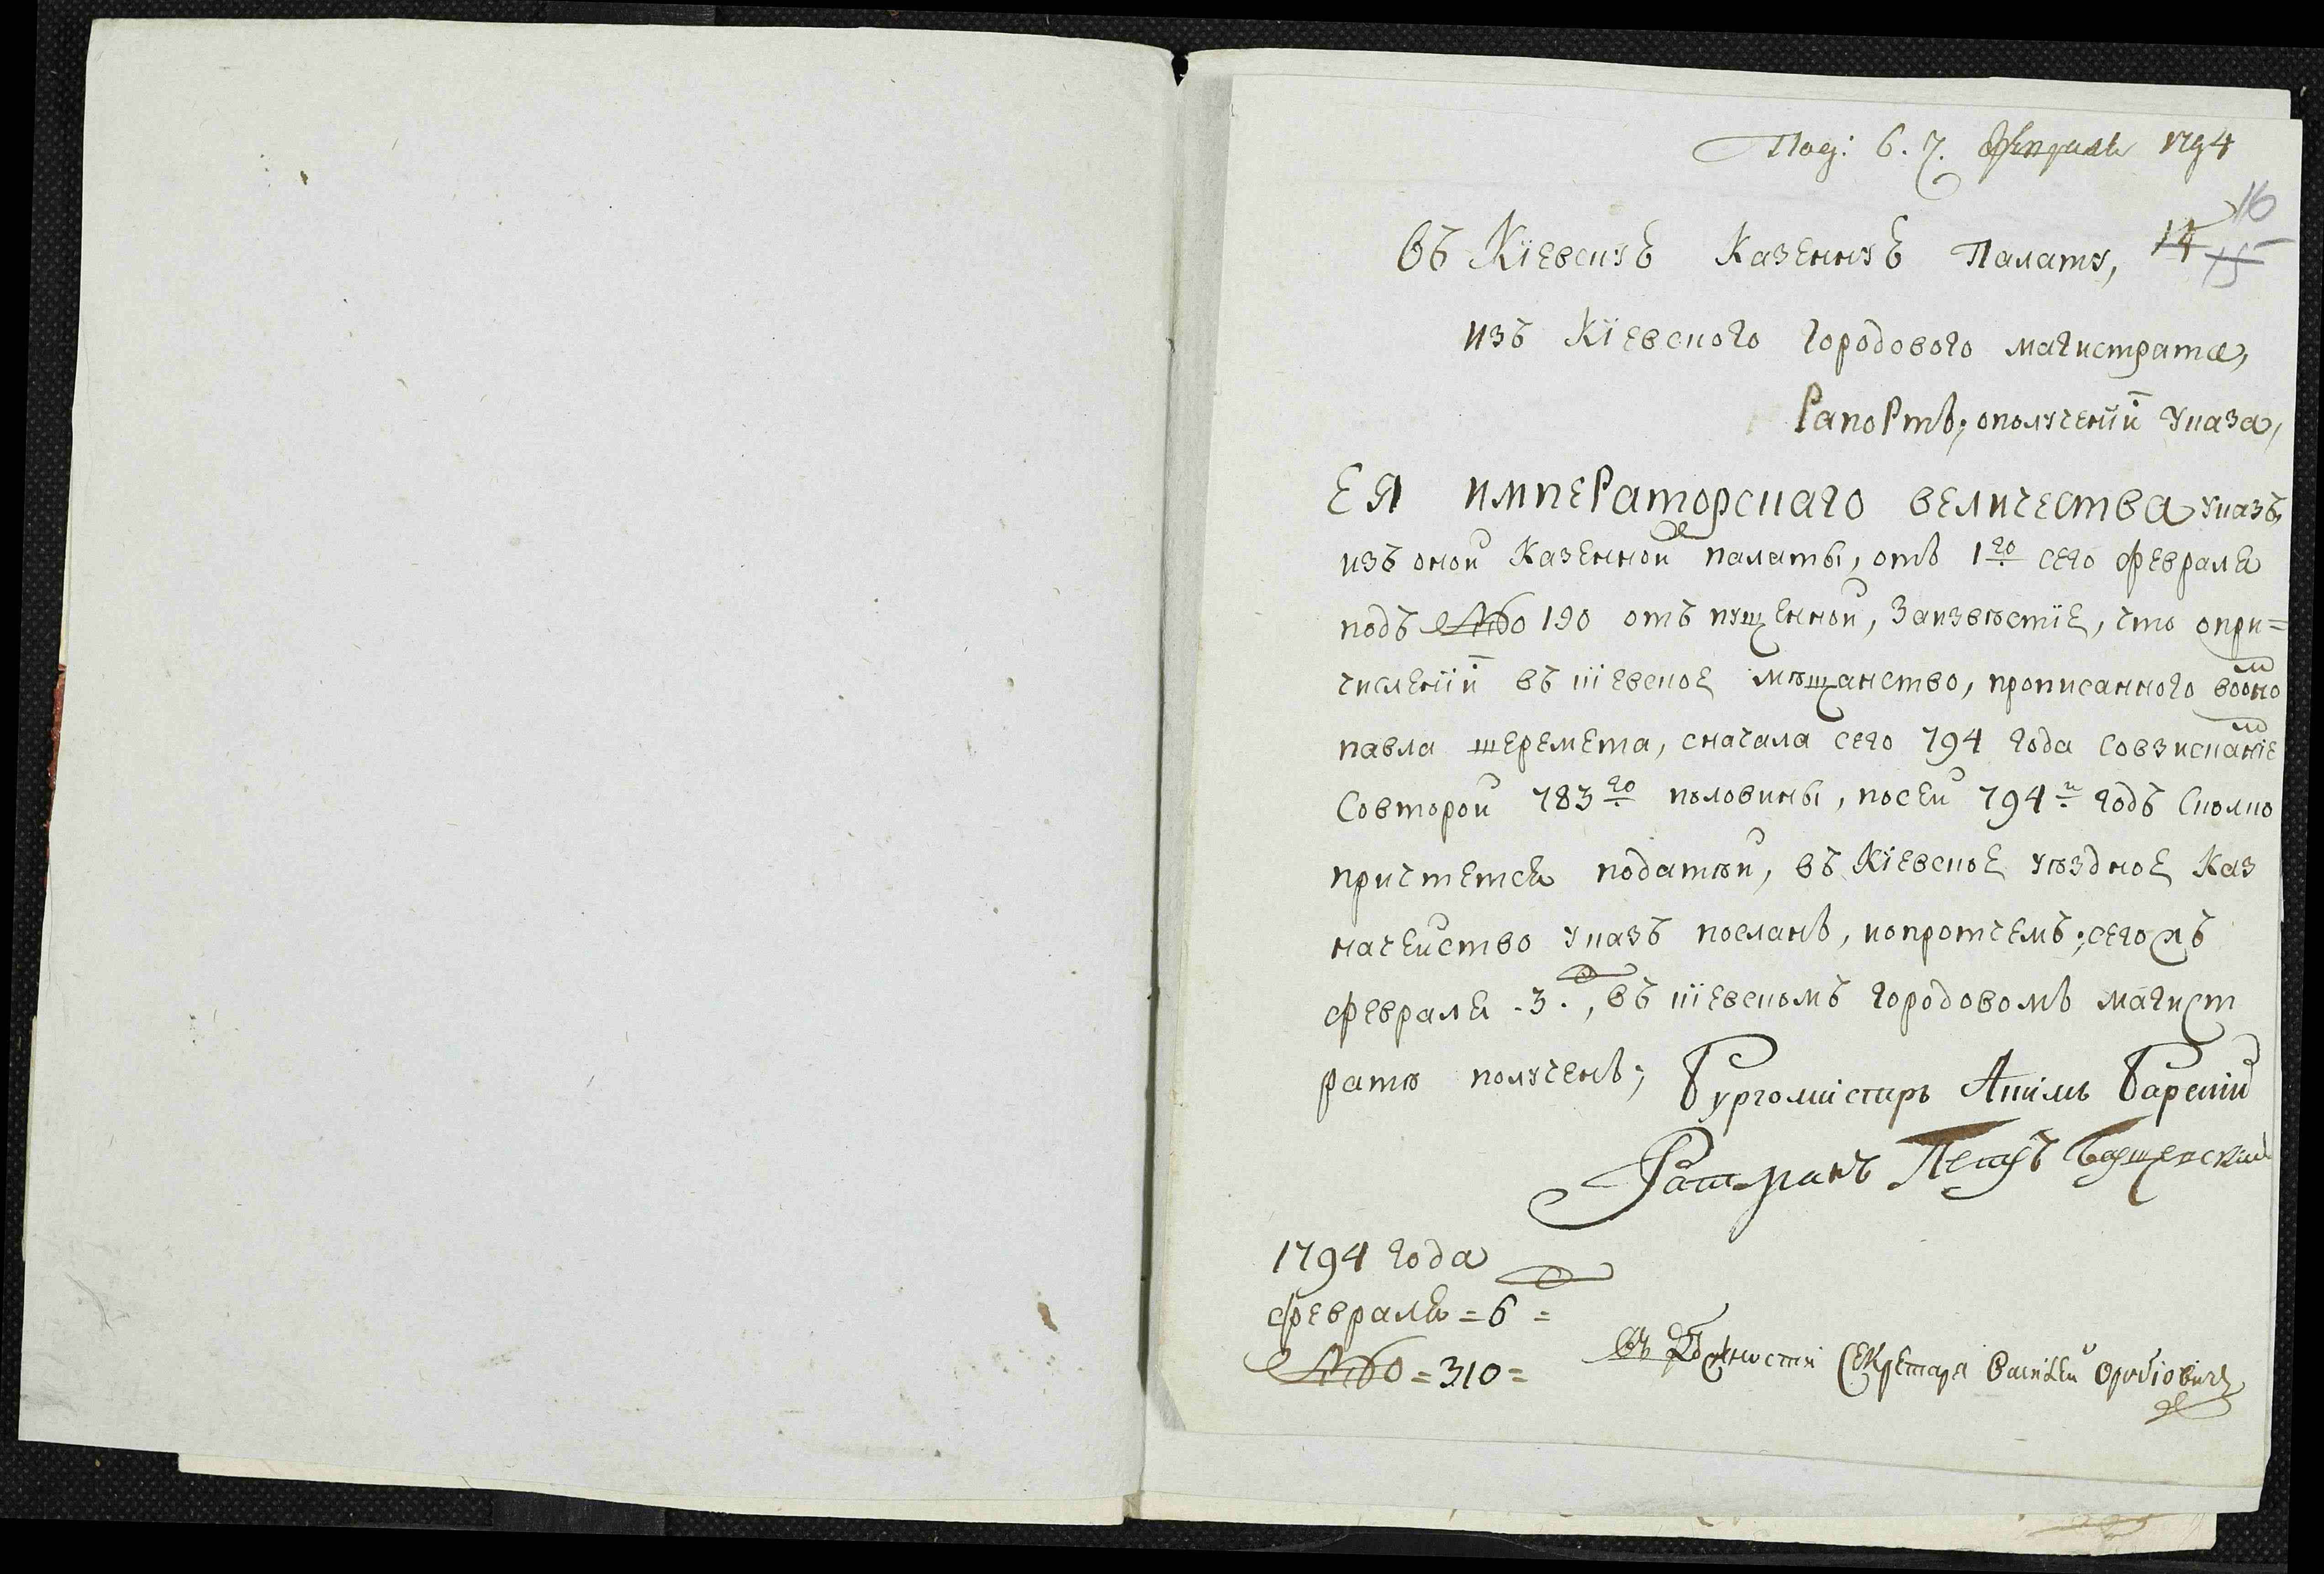 Под: 6. 7. Февраля 1794
16
14 15
Въ Кіевскую Казенную Палату,
изъ Кіевского городового магистрата,
Рапортъ; ополученіи указа,
ЕЯ ИМПЕРаторскаго величества указъ,
изъ оной Казенной палаты, отъ 1го сего февраля
подъ №о 190 отъ пущенной, Заизвѣстіе, что опри=
численіи въ кіевское мѣщанство, прописанного воономъ
павла шеремета, сначала сего 794 года совзисканіем
Совторой 783го половины, посей 794й годъ Сколко
причтется податѣй, въ Кіевское уѣздное Каз
начейство указъ посланъ, ипротчемъ; сегожъ
февраля .3., въ кіевскомъ городовомъ магист
ратѣ полученъ;
Бургомистръ Акимъ Барскій
Ратманъ Петръ
1794 года
февраля = 6 =
№о = 310 =
Въ Должности Секретаря Василей